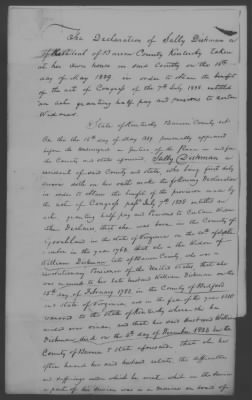 The Declaration of Sally Dickman a
resident of Barren County Kentucky taken
at her own house in said County on the 16th
day of May 1839 in order to obtain the benefit
of the act of Congress of the 7th July 1838 entitled
an act granting half pay and pensions to certain
Widows.
State of Kentucky Barren County sct.
On this the 16th day of May 1839 personally appeared
before the undersigned a Justice of the Peace in and for
the County and state aforesaid Sally Dickman a
resident of said County and state, who being first duly
sworn doth on her oath make the following Declaration
in order to obtain the benefit of the provision made by
the act of Congress passed July 7th 1838 entitled an
act granting half pay and Pensions to Certain Widows
She Declares that she was born in the County of
Goochland in the state of Virginia on the of
in the year 1762 that she is the Widow of
William Dickman late of Barren County who was a
revolutionary Pensioner of the United States, that she
was married to her late husband William Dickman on the
15th day of February 1782, in the County of Bedford
and state of Virginia and in the fall of the year 1810
removed to the state of Kentucky where she has
ever since, and that her said husband William
Dickman died on the 6th day of December 1836 in the
County of Barren & state aforesaid, that she has
often heard her said husband relate the difficulties
and sufferings under which he went while in the service
a part of his service was as a marine on board of